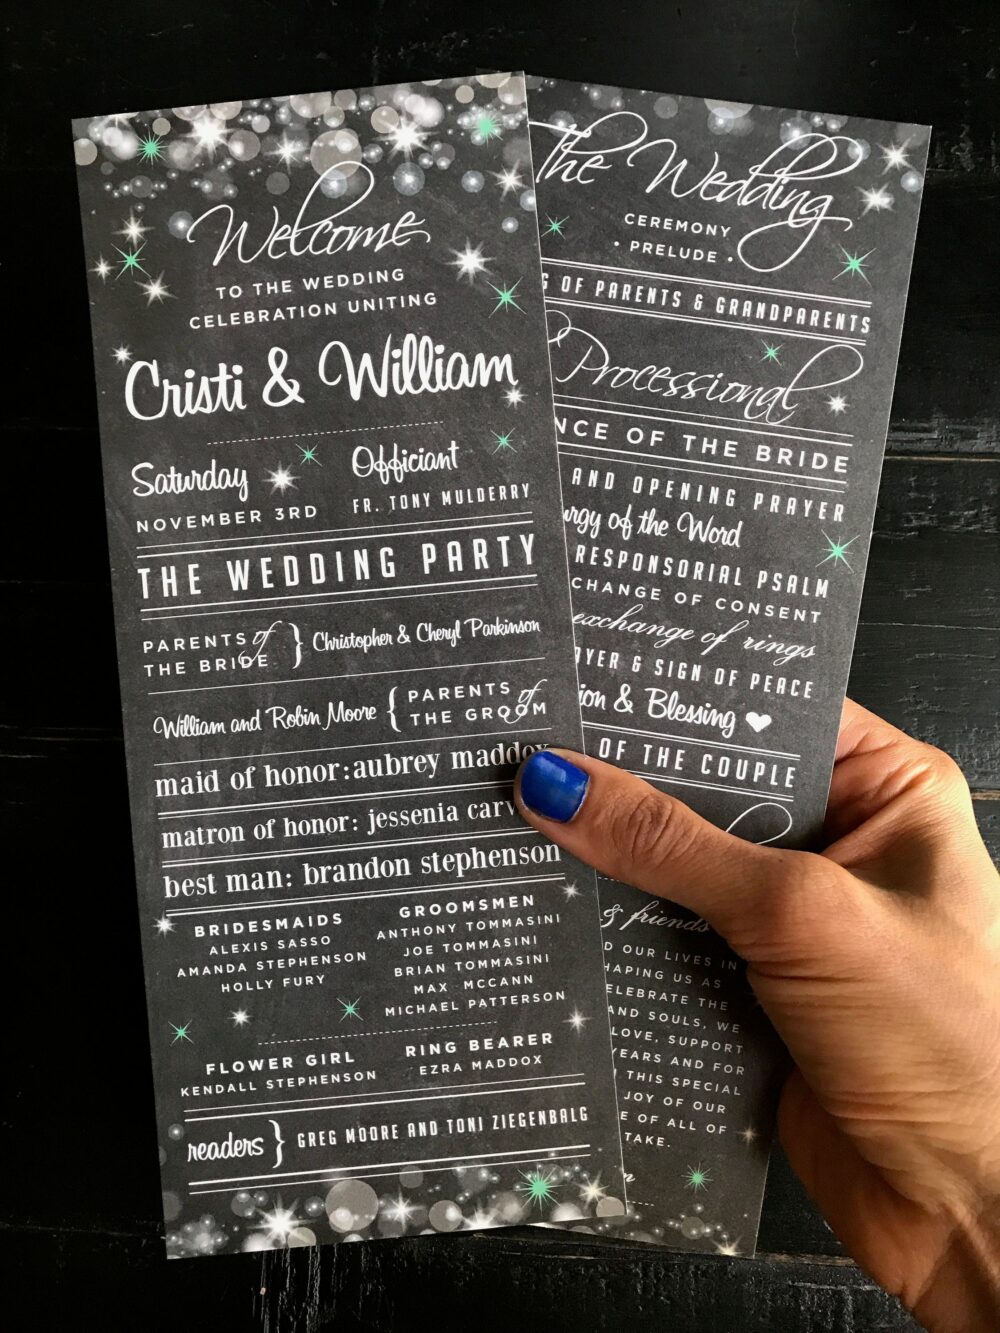 Welcome
TO THE WEDDING
CELEBRATION UNITING
Cristi & William
Saturday
NOVEMBER 3RD
Officiant
FR. TONY MULDERRY
THE WEDDING PARTY
PARENTS of
THE BRIDE } Christopher & Cheryl Parkinson
William and Robin Moore { PARENTS of
THE GROOM
maid of honor:aubrey maddox
matron of honor: jessenia carv
best man: brandon stephenson
BRIDESMAIDS
ALEXIS SASSO
AMANDA STEPHENSON
HOLLY FURY
GROOMSMEN
ANTHONY TOMMASINI
JOE TOMMASINI
BRIAN TOMMASINI
MAX MCCANN
MICHAEL PATTERSON
FLOWER GIRL
KENDALL STEPHENSON
RING BEARER
EZRA MADDOX
readers } GREG MOORE AND TONI ZIEGENBALG
The Wedding
CEREMONY
• PRELUDE •
G OF PARENTS & GRANDPARENTS
Processional
NCE OF THE BRIDE
AND OPENING PRAYER
urgy of the Word
RESPONSORIAL PSALM
CHANGE OF CONSENT
exchange of rings
YER & SIGN OF PEACE
ion & Blessing
OF THE COUPLE
& friends
D OUR LIVES IN
HAPING US AS
ELEBRATE THE
AND SOULS, WE
LOVE, SUPPORT
YEARS AND FOR
THIS SPECIAL
JOY OF OUR
E OF ALL OF
TAKE.